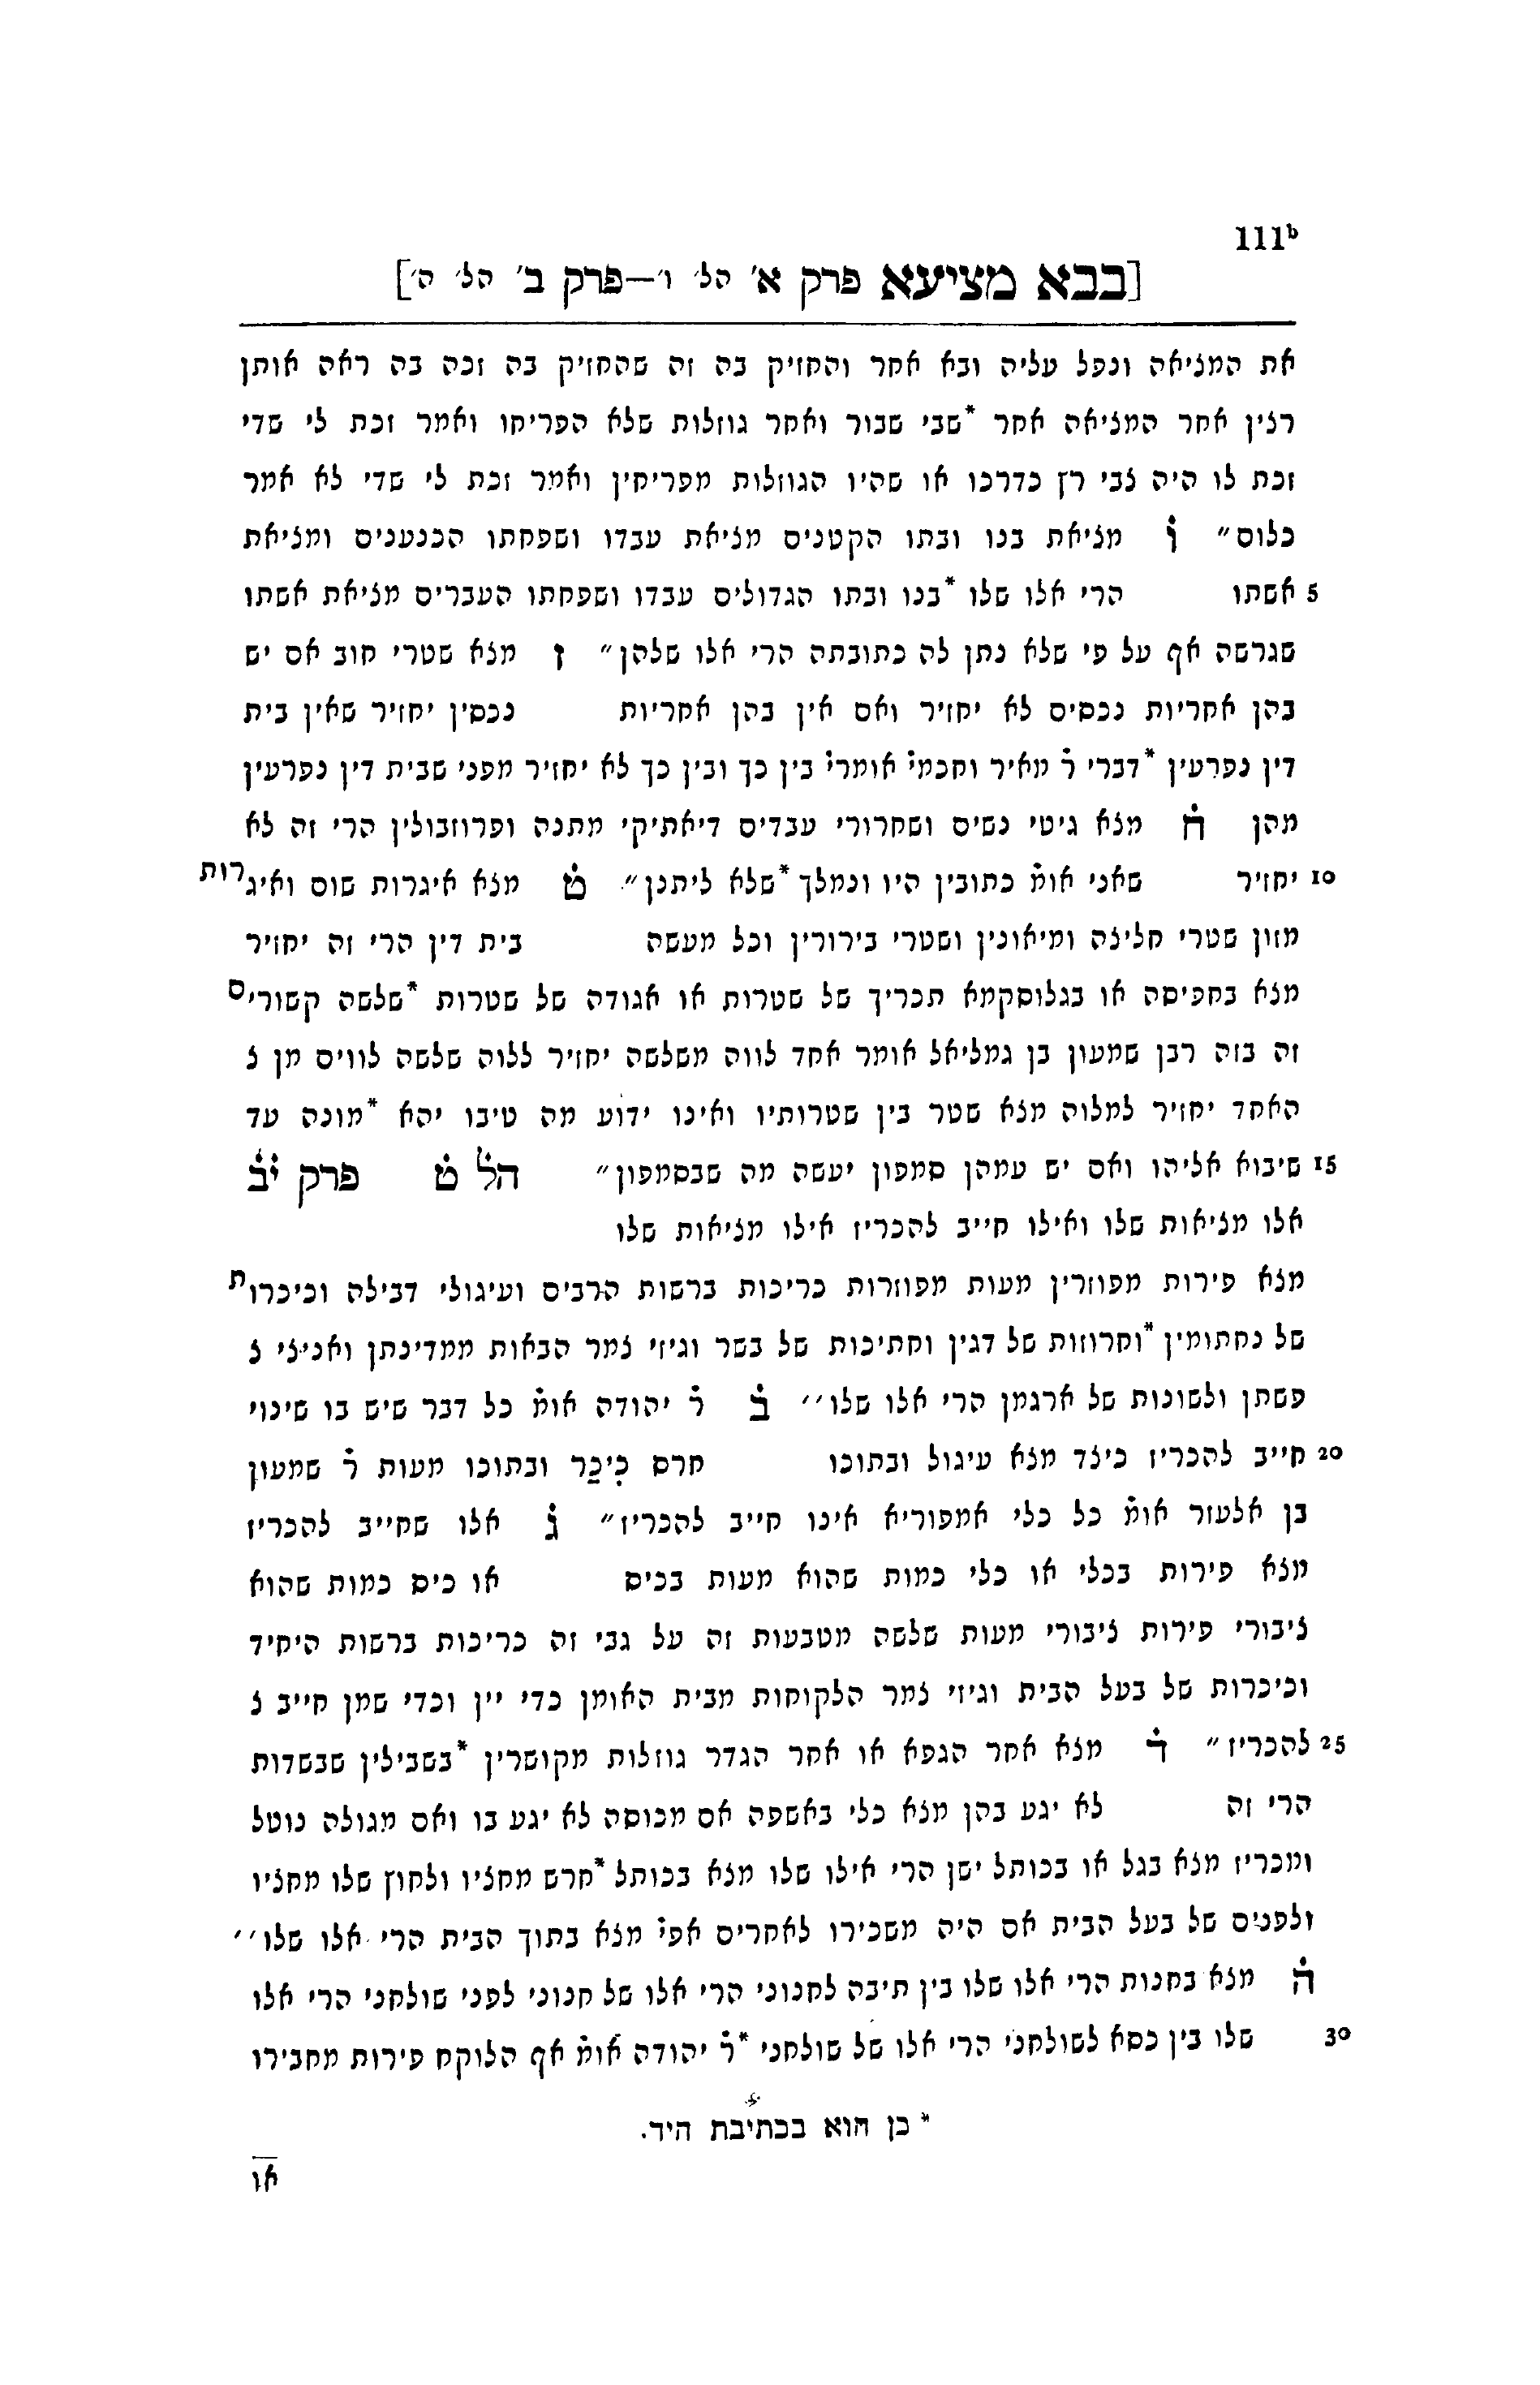 111ᵇ
[בבא מציעא פרק א׳ הל׳ ו׳—פרק ב׳ הל׳ ה׳]
את המציאה ונפל עליה ובא אחר והחזיק בה זה שהחזיק בה זכה בה ראה אותן
רצין אחר המציאה אחר *שבי שבור ואחר גוזלות שלא הפריחו ואמר זכת לי שדי
זכת לו היה צבי רץ כדרכו או שהיו הגוזלות מפריחין ואמר זכת לי שדי לא אמר
כלוס״ ו̇ מציאת בנו ובתו הקטנים מציאת עבדו ושפחתו הכנענים ומציאת
5 אשתו הרי אלו שלו *בנו ובתו הגדולים עבדו ושפחתו העברים מציאת אשתו
שגרשה אף על פי שלא נתן לה כתובתה הרי אלו שלהן״ ז̇ מצא שטרי חוב אם יש
בהן אחריות נכסים לא יחזיר ואם אין בהן אחריות נכסין יחזיר שאין בית
דין נפרעין *דברי ר̇ מאיר וחכמי̇ אומרי̇ בין כך ובין כך לא יחזיר מפני שבית דין נפרעין
מהן ח̇ מצא גיטי נשים ושחרורי עבדים דיאתיקי מתנה ופרוזבולין הרי זה לא
10 יחזיר שאני אומ̇ כתובין היו ונמלך *שלא ליתנן״ ט̇ מצא איגרות שום ואיגרות
מזון שטרי חליצה ומיאונין ושטרי בירורין וכל מעשה בית דין הרי זה יחזיר
מצא בחפיסה או בגלוסקמא תכריך של שטרות או אגודה של שטרות *שלשה קשורים
זה בזה רבן שמעון בן גמליאל אומר אחד לווה משלשה יחזיר ללוה שלשה לווים מן צ
האחד יחזיר למלוה מצא שטר בין שטרותיו ואינו ידוע מה טיבו יהא *מונה עד
15 שיבוא אליהו ואם יש עמהן סמפון יעשה מה שבסמפון״ הל̇ ט̇ פרק י̇ב̇
אלו מציאות שלו ואילו חייב להכריז אילו מציאות שלו
מצא פירות מפוזרין מעות מפוזרות כריכות ברשות הרבים ועיגולי דבילה וכיכרות
של נחתומין *וחרוזות של דגין וחתיכות של בשר וגיזי צמר הבאות ממדינתן ואניצי צ
פשתן ולשונות של ארגמן הרי אלו שלו׳׳ ב̇ ר̇ יהודה אומ̇ כל דבר שיש בו שינוי
20 חייב להכריז כיצד מצא עיגול ובתוכו חרס כִּיכַּר ובתוכו מעות ר̇ שמעון
בן אלעזר אומ̇ כל כלי אמפוריא אינו חייב להכריז״ ג̇ אלו שחייב להכריז
מצא פירות בכלי או כלי כמות שהוא מעות בכיס או כיס כמות שהוא
ציבורי פירות ציבורי מעות שלשה מטבעות זה על גבי זה כריכות ברשות היחיד
וכיכרות של בעל הבית וגיזי צמר הלקוחות מבית האומן כדי יין וכדי שמן חייב צ
25 להכריז״ ד̇ מצא אחר הגפא או אחר הגדר גוזלות מקושרין *בשבילין שבשדות
הרי זה לא יגע בהן מצא כלי באשפה אם מכוסה לא יגע בו ואם מגולה נוטל
ומכריז מצא בגל או בכותל ישן הרי אילו שלו מצא בכותל *חרש מחציו ולחוץ שלו מחציו
ולפנים של בעל הבית אם היה משכירו לאחרים אפי̇ מצא בתוך הבית הרי אלו שלו׳׳
ה̇ מצא בחנות הרי אלו שלו בין תיבה לחנוני הרי אלו של חנוני לפני שולחני הרי אלו
30 שלו בין כסא לשולחני הרי אלו של שולחני *ר̇ יהודה אומ̇ אף הלוקח פירות מחבירו
* כן הוא בכתיבת היד.
או